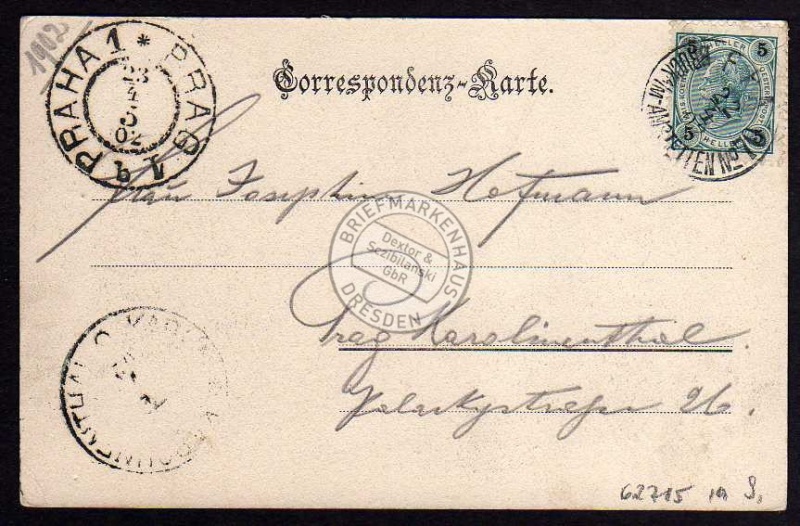 1902
PRAHA 1 * PRAG
23
5
02
Correspondenz-Karte.
5 HELLER 5
5 HELLER 5
AMSTETTEN No
Frau Josephin Hofmann
BRIEFMARKENHAUS
Dextor &
Sczibilanski
GbR
DRESDEN
Prag Karolinenthal.
Palackystrasse 26.
62715